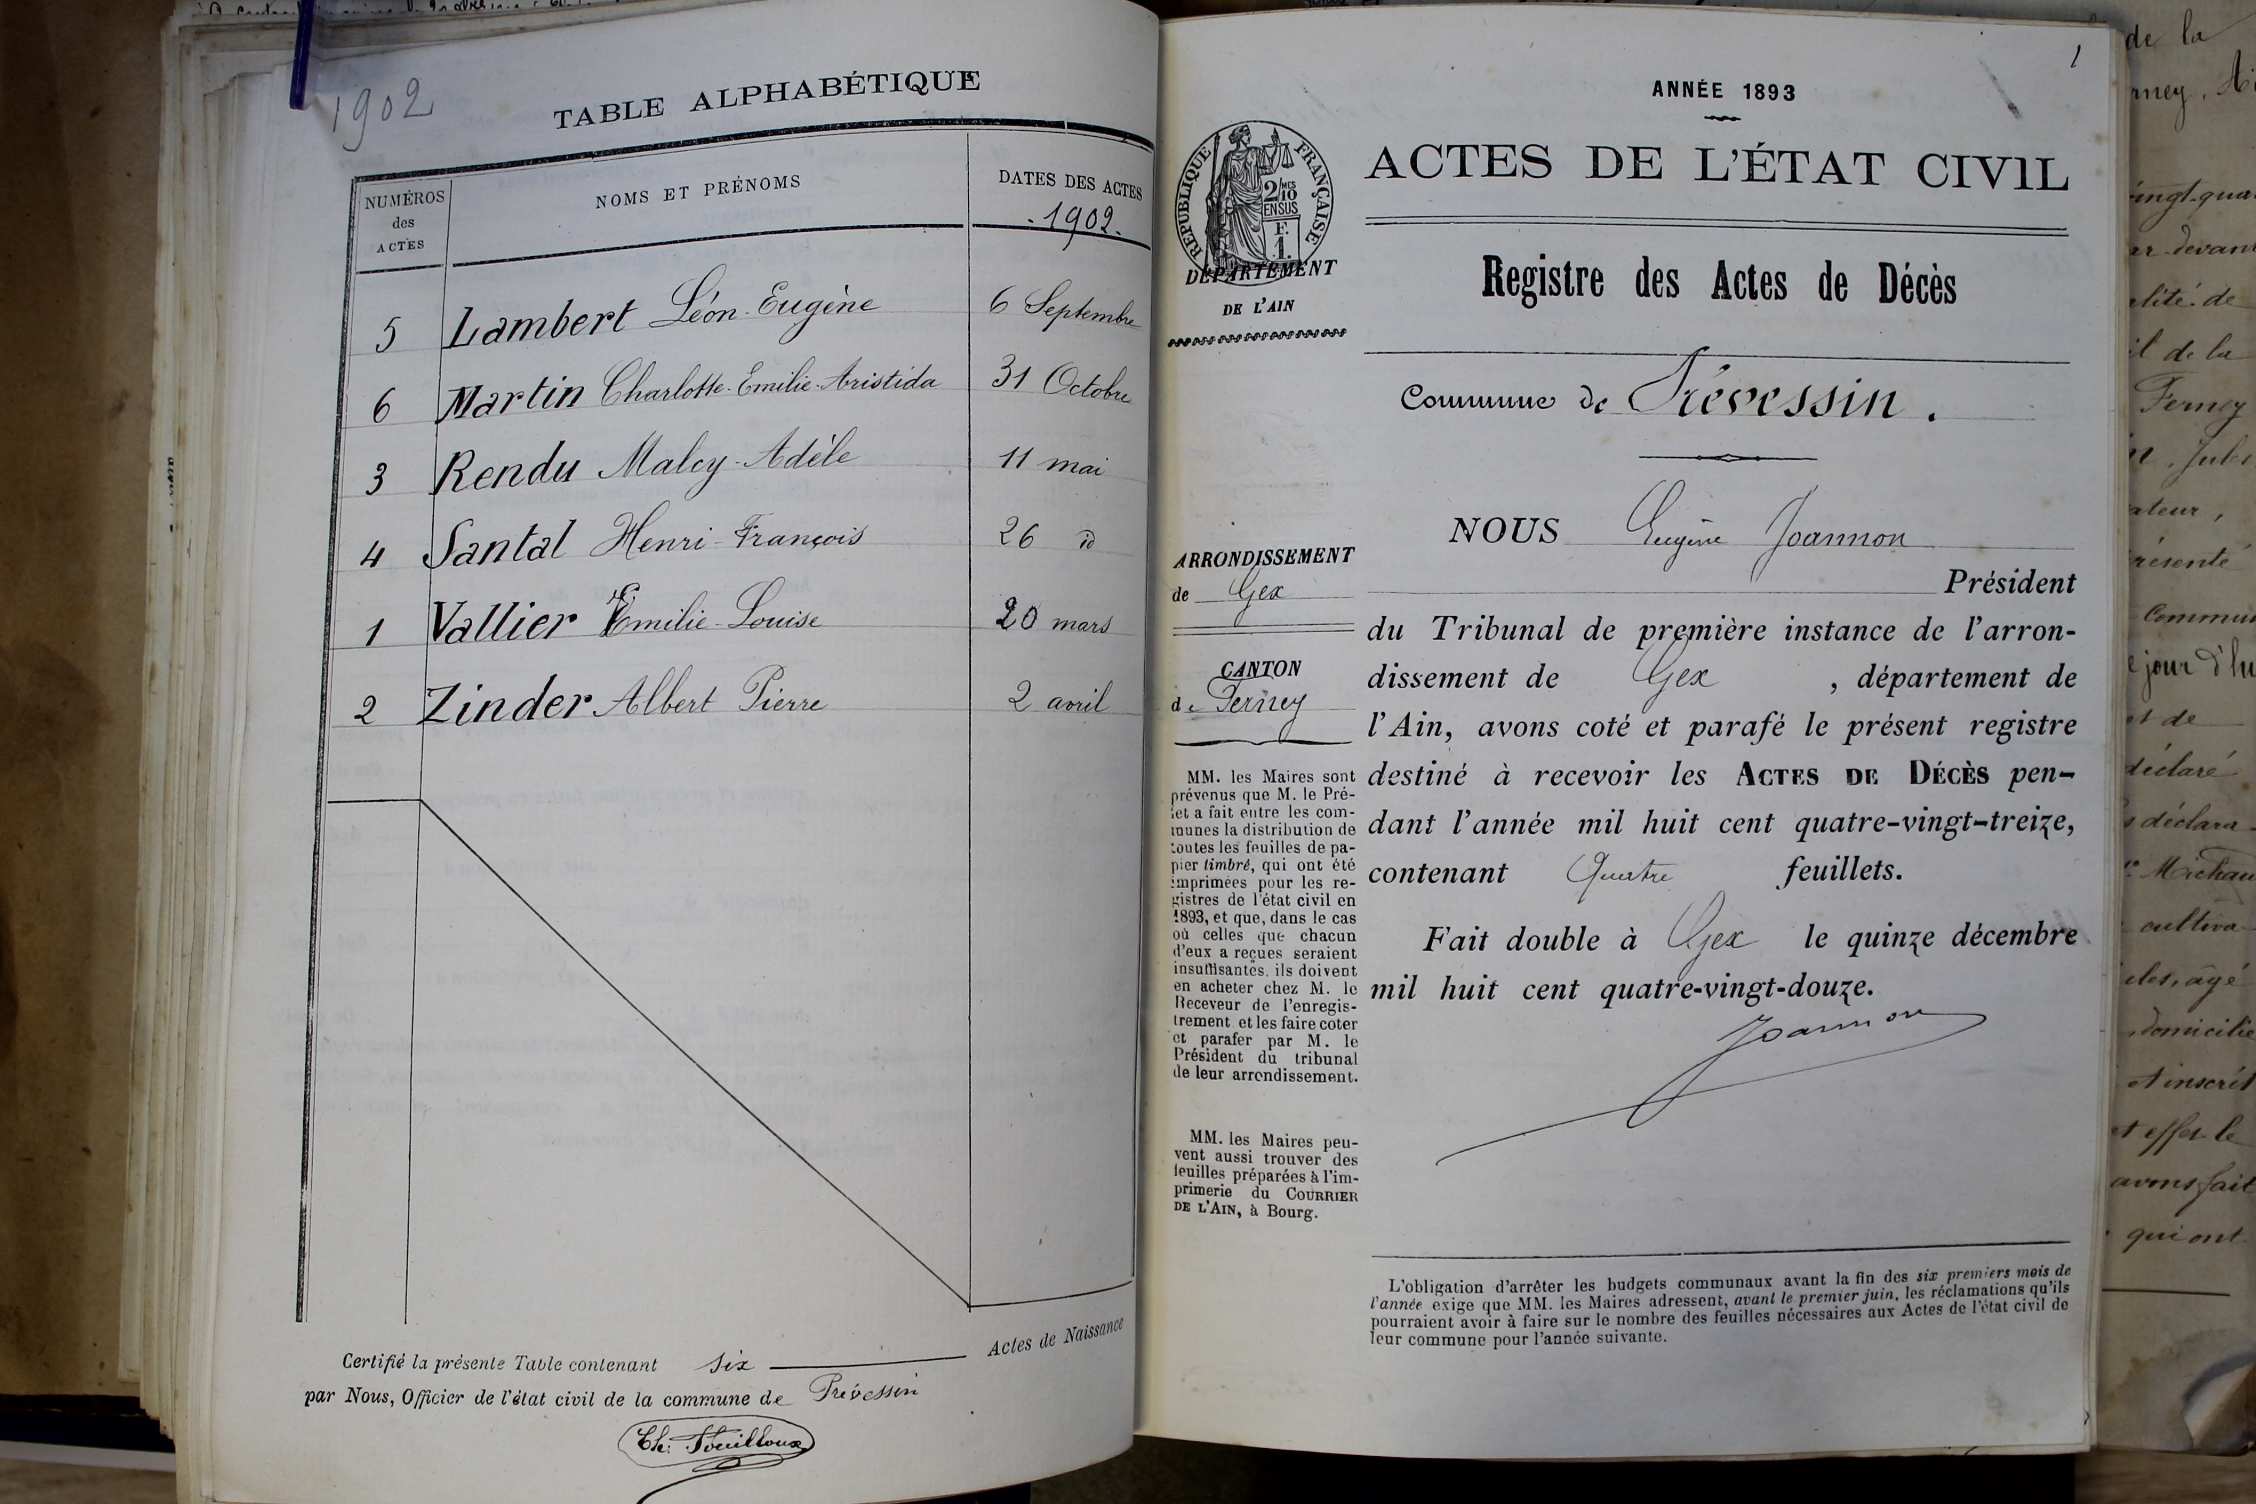 1902
TABLE ALPHABÉTIQUE
NUMÉROS
des
ACTES
NOMS ET PRÉNOMS
DATES DES ACTES
1902.
5 Lambert Léon-Eugène 6 Septembre
6 Martin Charlotte-Emilie-Aristida 31 Octobre
3 Rendu Malcy-Adèle 11 mai
4 Santal Henri-François 26 id
1 Vallier Emilie-Louise 20 mars
2 Zinder Albert Pierre 2 avril
Certifié la présente Table contenant six Actes de Naissance
par Nous, Officier de l'état civil de la commune de Prévessin
Ch. Fouilloux
1
ANNÉE 1893
ACTES DE L'ÉTAT CIVIL
RÉPUBLIQUE FRANÇAISE
2/10
MES
EN SUS
F.
1.
DÉPARTEMENT
DE L'AIN
Registre des Actes de Décès
Commune de Prévessin.
ARRONDISSEMENT
de Gex
CANTON
de Ferney
MM. les Maires sont
prévenus que M. le Pré-
fet a fait entre les com-
munes la distribution de
toutes les feuilles de pa-
pier timbré, qui ont été
imprimées pour les re-
gistres de l'état civil en
1893, et que, dans le cas
où celles que chacun
d'eux a reçues seraient
insuffisantes, ils doivent
en acheter chez M. le
Receveur de l'enregis-
trement et les faire coter
et parafer par M. le
Président du tribunal
de leur arrondissement.
MM. les Maires peu-
vent aussi trouver des
feuilles préparées à l'im-
primerie du COURRIER
DE L'AIN, à Bourg.
NOUS Eugène Joannon
Président
du Tribunal de première instance de l'arron-
dissement de Gex , département de
l'Ain, avons coté et parafé le présent registre
destiné à recevoir les ACTES DE DÉCÈS pen-
dant l'année mil huit cent quatre-vingt-treize,
contenant Quatre feuillets.
Fait double à Gex le quinze décembre
mil huit cent quatre-vingt-douze.
Joannon
L'obligation d'arrêter les budgets communaux avant la fin des six premiers mois de
l'année exige que MM. les Maires adressent, avant le premier juin, les réclamations qu'ils
pourraient avoir à faire sur le nombre des feuilles nécessaires aux Actes de l'état civil de
leur commune pour l'année suivante.
de la
vingt-qua
devan
de
de la
Ferney
Jules
commun
jour d'hu
et de
déclaré
déclara
Michau
cultiva
âgé
domicilié
inscrit
et effet le
avons fait
qui ont